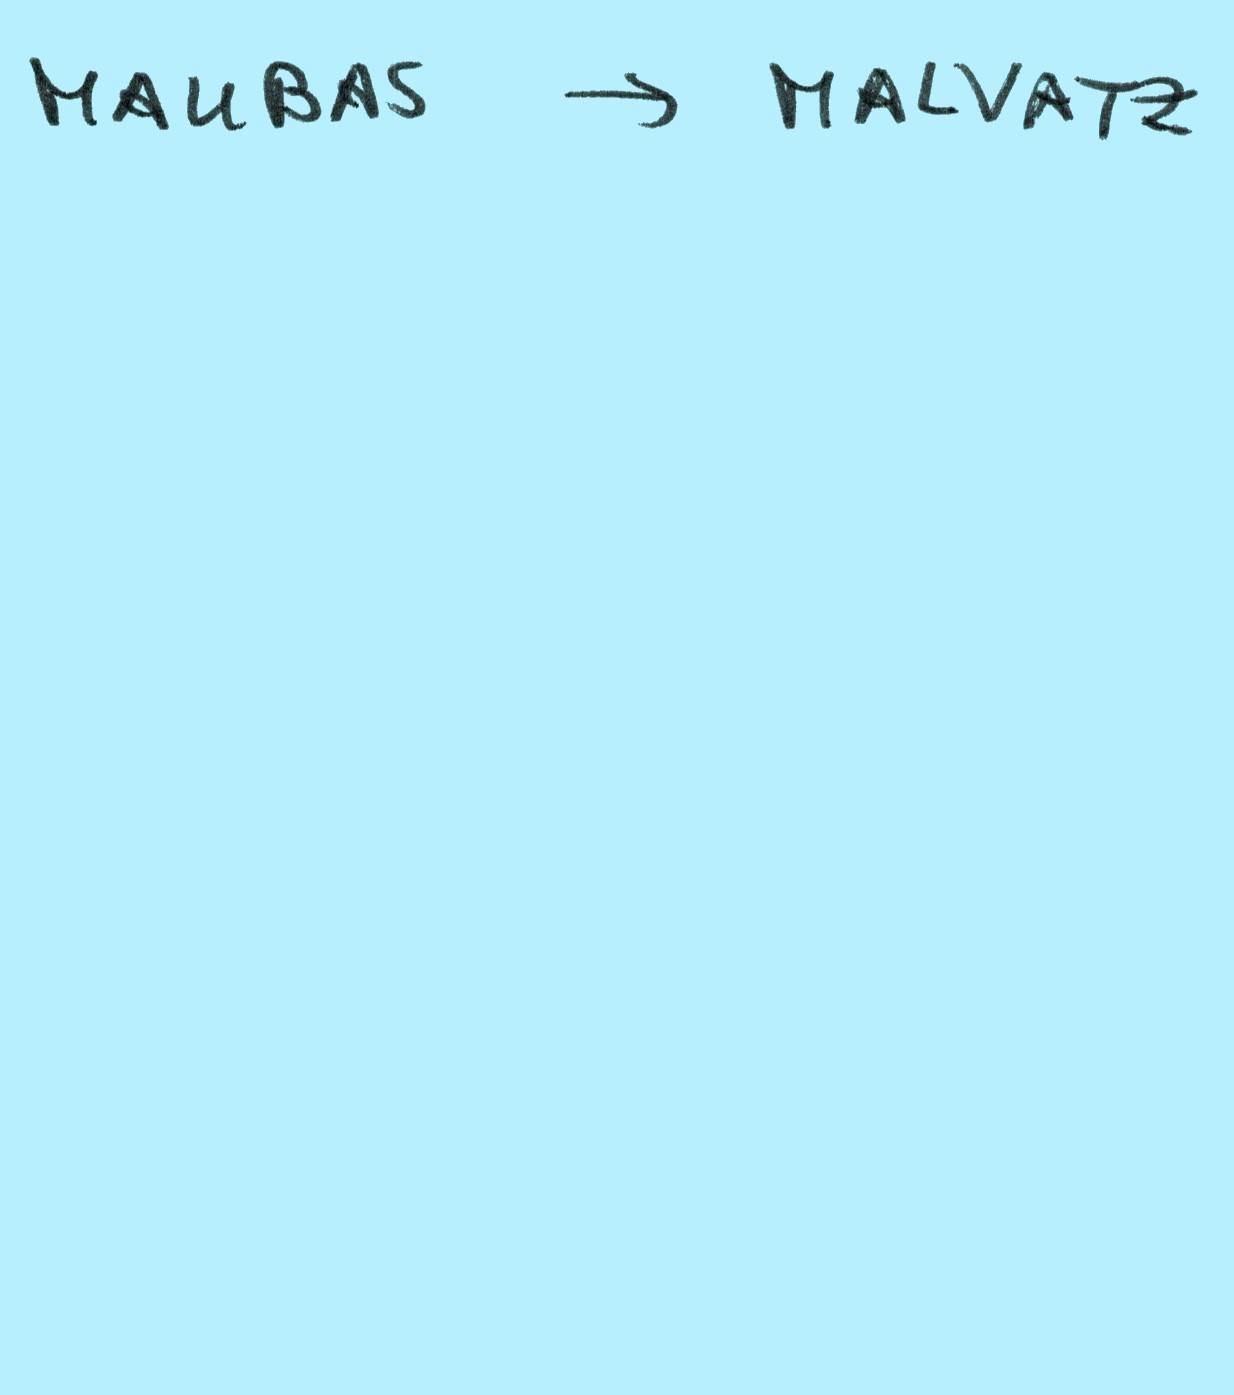 MAUBAS → MALVATZ